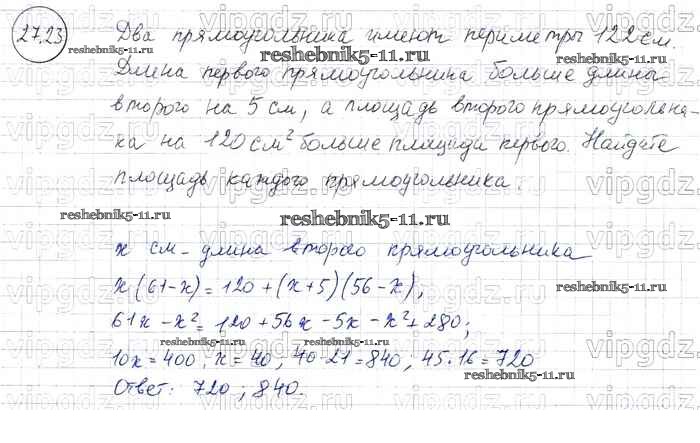 27.23 Два прямоугольника имеют периметры 122 см.
reshebnik5-11.ru
Длина первого прямоугольника больше длины
второго на 5 см, а площадь второго прямоугольни-
ка на 120 см² больше площади первого. Найдите
площадь каждого прямоугольника.
reshebnik5-11.ru
reshebnik5-11.ru
x см - длина второго прямоугольника
x(61-x) = 120 + (x+5)(56-x);
reshebnik5-11.ru
61x - x² = 120 + 56x - 5x - x² + 280;
reshebnik5-11.ru
reshebnik5-11.ru
10x = 400; x = 40; 40·21 = 840; 45·16 = 720
reshebnik5-11.ru
Ответ: 720; 840.
vipgdz.ru